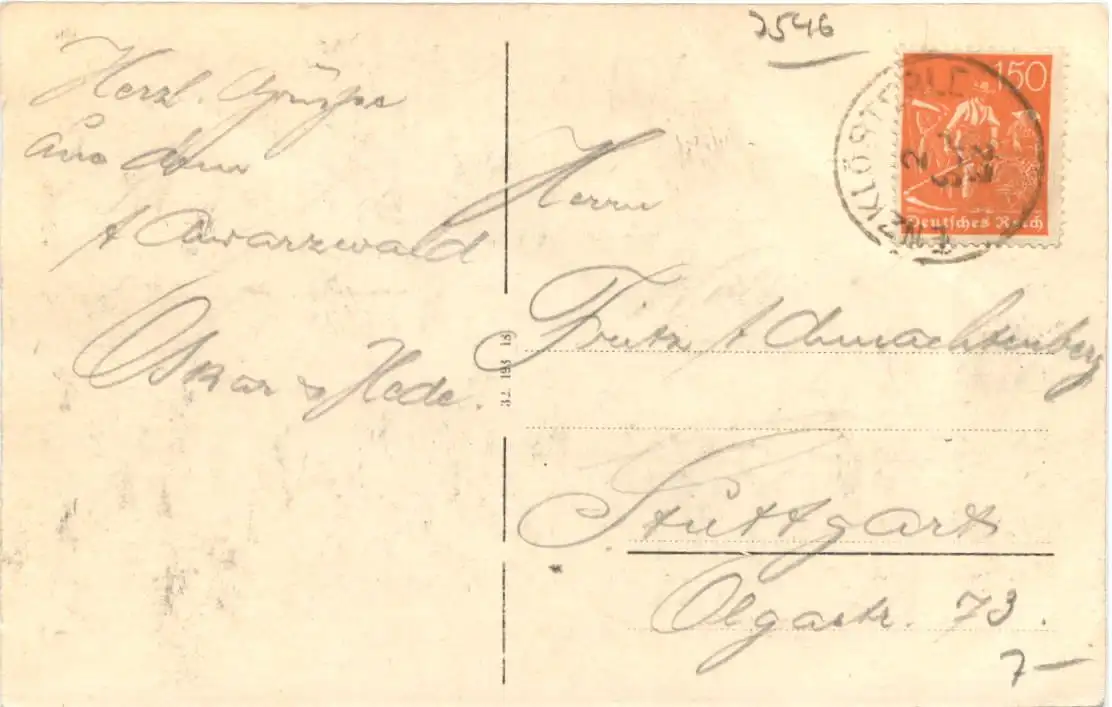 Herzl. Grüße
aus dem
Schwarzwald
Oskar & Hede.
7546
150
Deutsches Reich
KLÖSTERLE
32 193 18
Herrn
Fritz Schmachtenberg
Stuttgart
Olgastr. 73.
7-